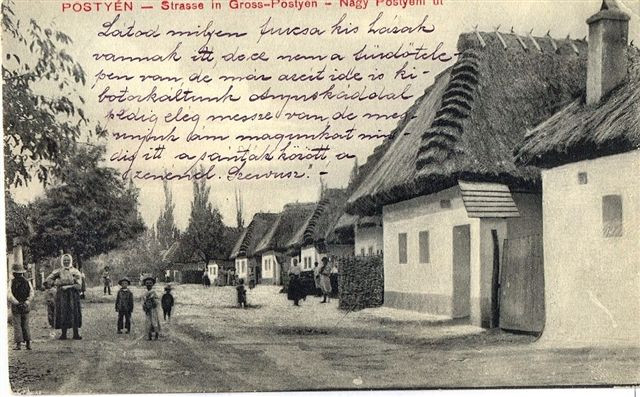 PÖSTYÉN — Strasse in Gross-Pöstyén - Nagy Pöstyéni út
Látod milyen furcsa kis házak
vannak itt de ez nem a fürdőtele-
pen van de már azért ide is ki-
botorkáltunk Anyuskáddal
pedig elég messze van de meg
unjuk ám magunkat min-
dig itt a sánták között a
zenénél. Szervusz!-